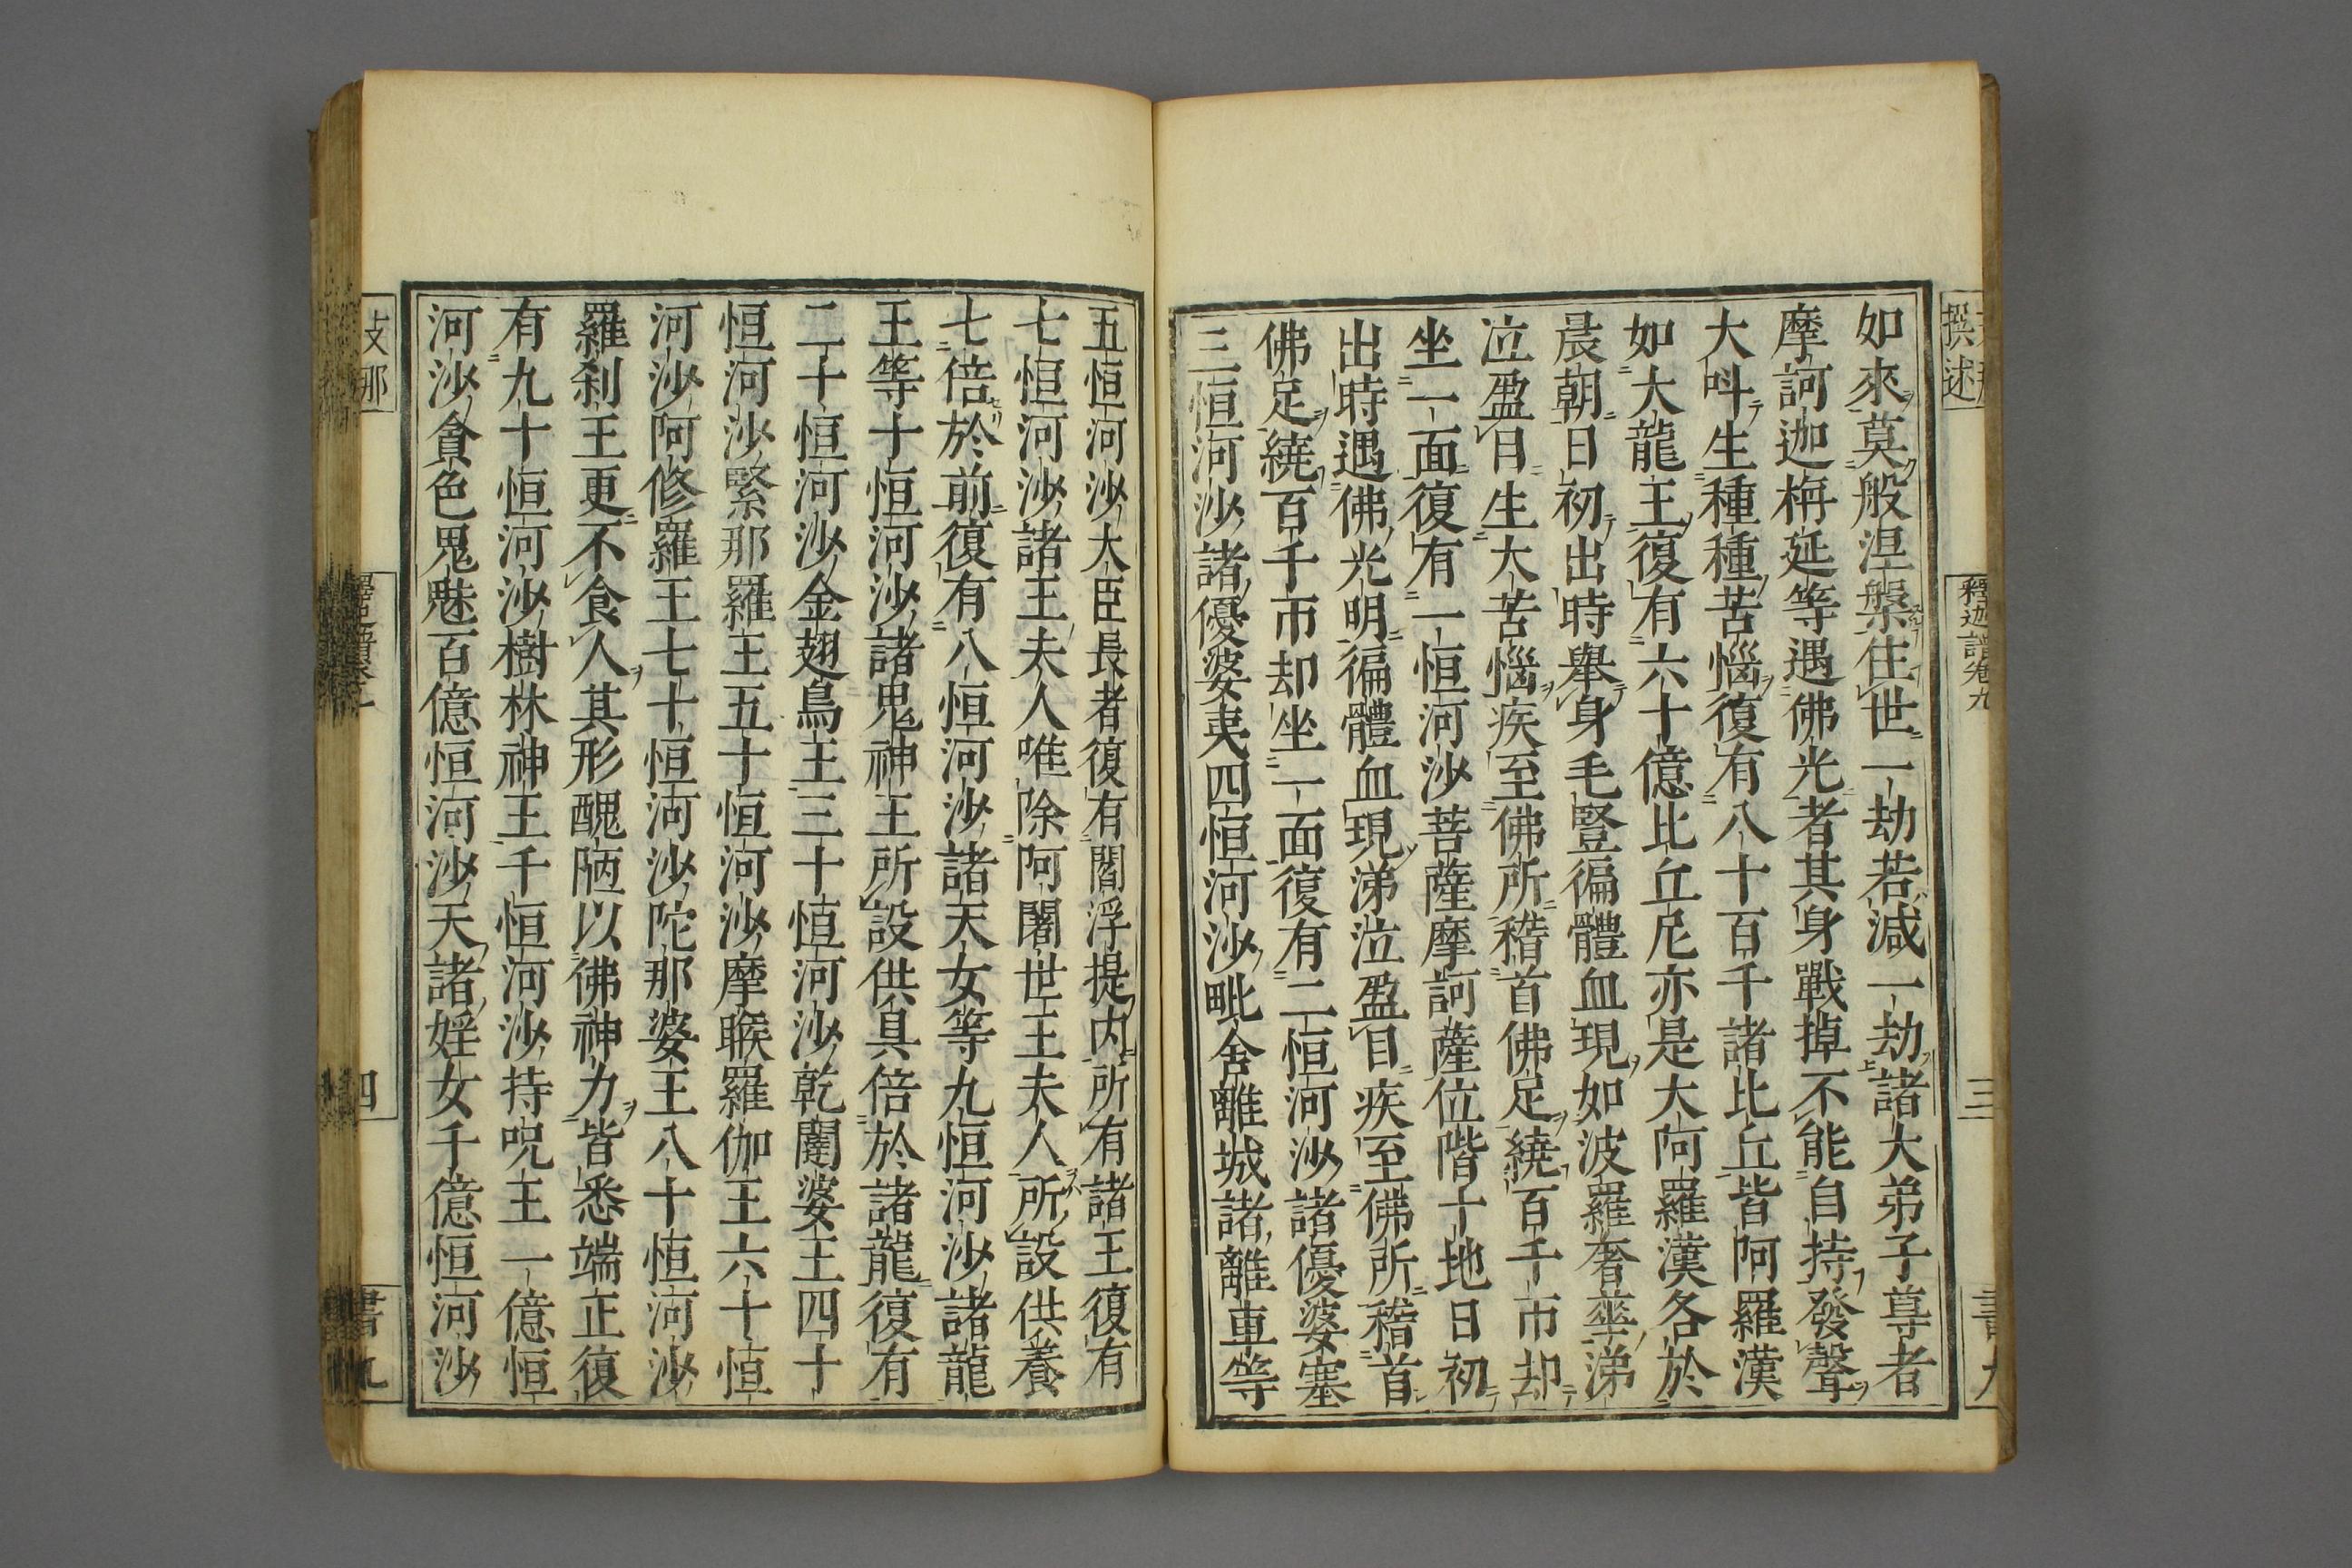 撰述
釋迦譜卷九
三
如來莫般涅槃住世一劫若減一劫諸大弟子尊者
摩訶迦栴延等遇佛光者其身戰掉不能自持發聲
大呌生種種苦惱復有八十百千諸比丘皆阿羅漢
如大龍王復有六十億比丘尼亦是大阿羅漢各於
晨朝日初出時舉身毛豎徧體血現如波羅奢華涕
泣盈目生大苦惱疾至佛所稽首佛足繞百千帀却
坐一面復有一恒河沙菩薩摩訶薩位階十地日初
出時遇佛光明徧體血現涕泣盈目疾至佛所稽首
佛足繞百千帀却坐一面復有二恒河沙諸優婆塞
三恒河沙諸優婆夷四恒河沙毗舍離城諸離車等
五恒河沙大臣長者復有閻浮提内所有諸王復有
七恒河沙諸王夫人唯除阿闍世王夫人所設供養
七倍於前復有八恒河沙諸天女等九恒河沙諸龍
王等十恒河沙諸鬼神王所設供具倍於諸龍復有
二十恒河沙金翅鳥王三十恒河沙乾闥婆王四十
恒河沙緊那羅王五十恒河沙摩睺羅伽王六十恒
河沙阿修羅王七十恒河沙陀那婆王八十恒河沙
羅刹王更不食人其形醜陋以佛神力皆悉端正復
有九十恒河沙樹林神王千恒河沙持呪王一億恒
河沙貪色鬼魅百億恒河沙天諸婬女千億恒河沙
支那
四
書九